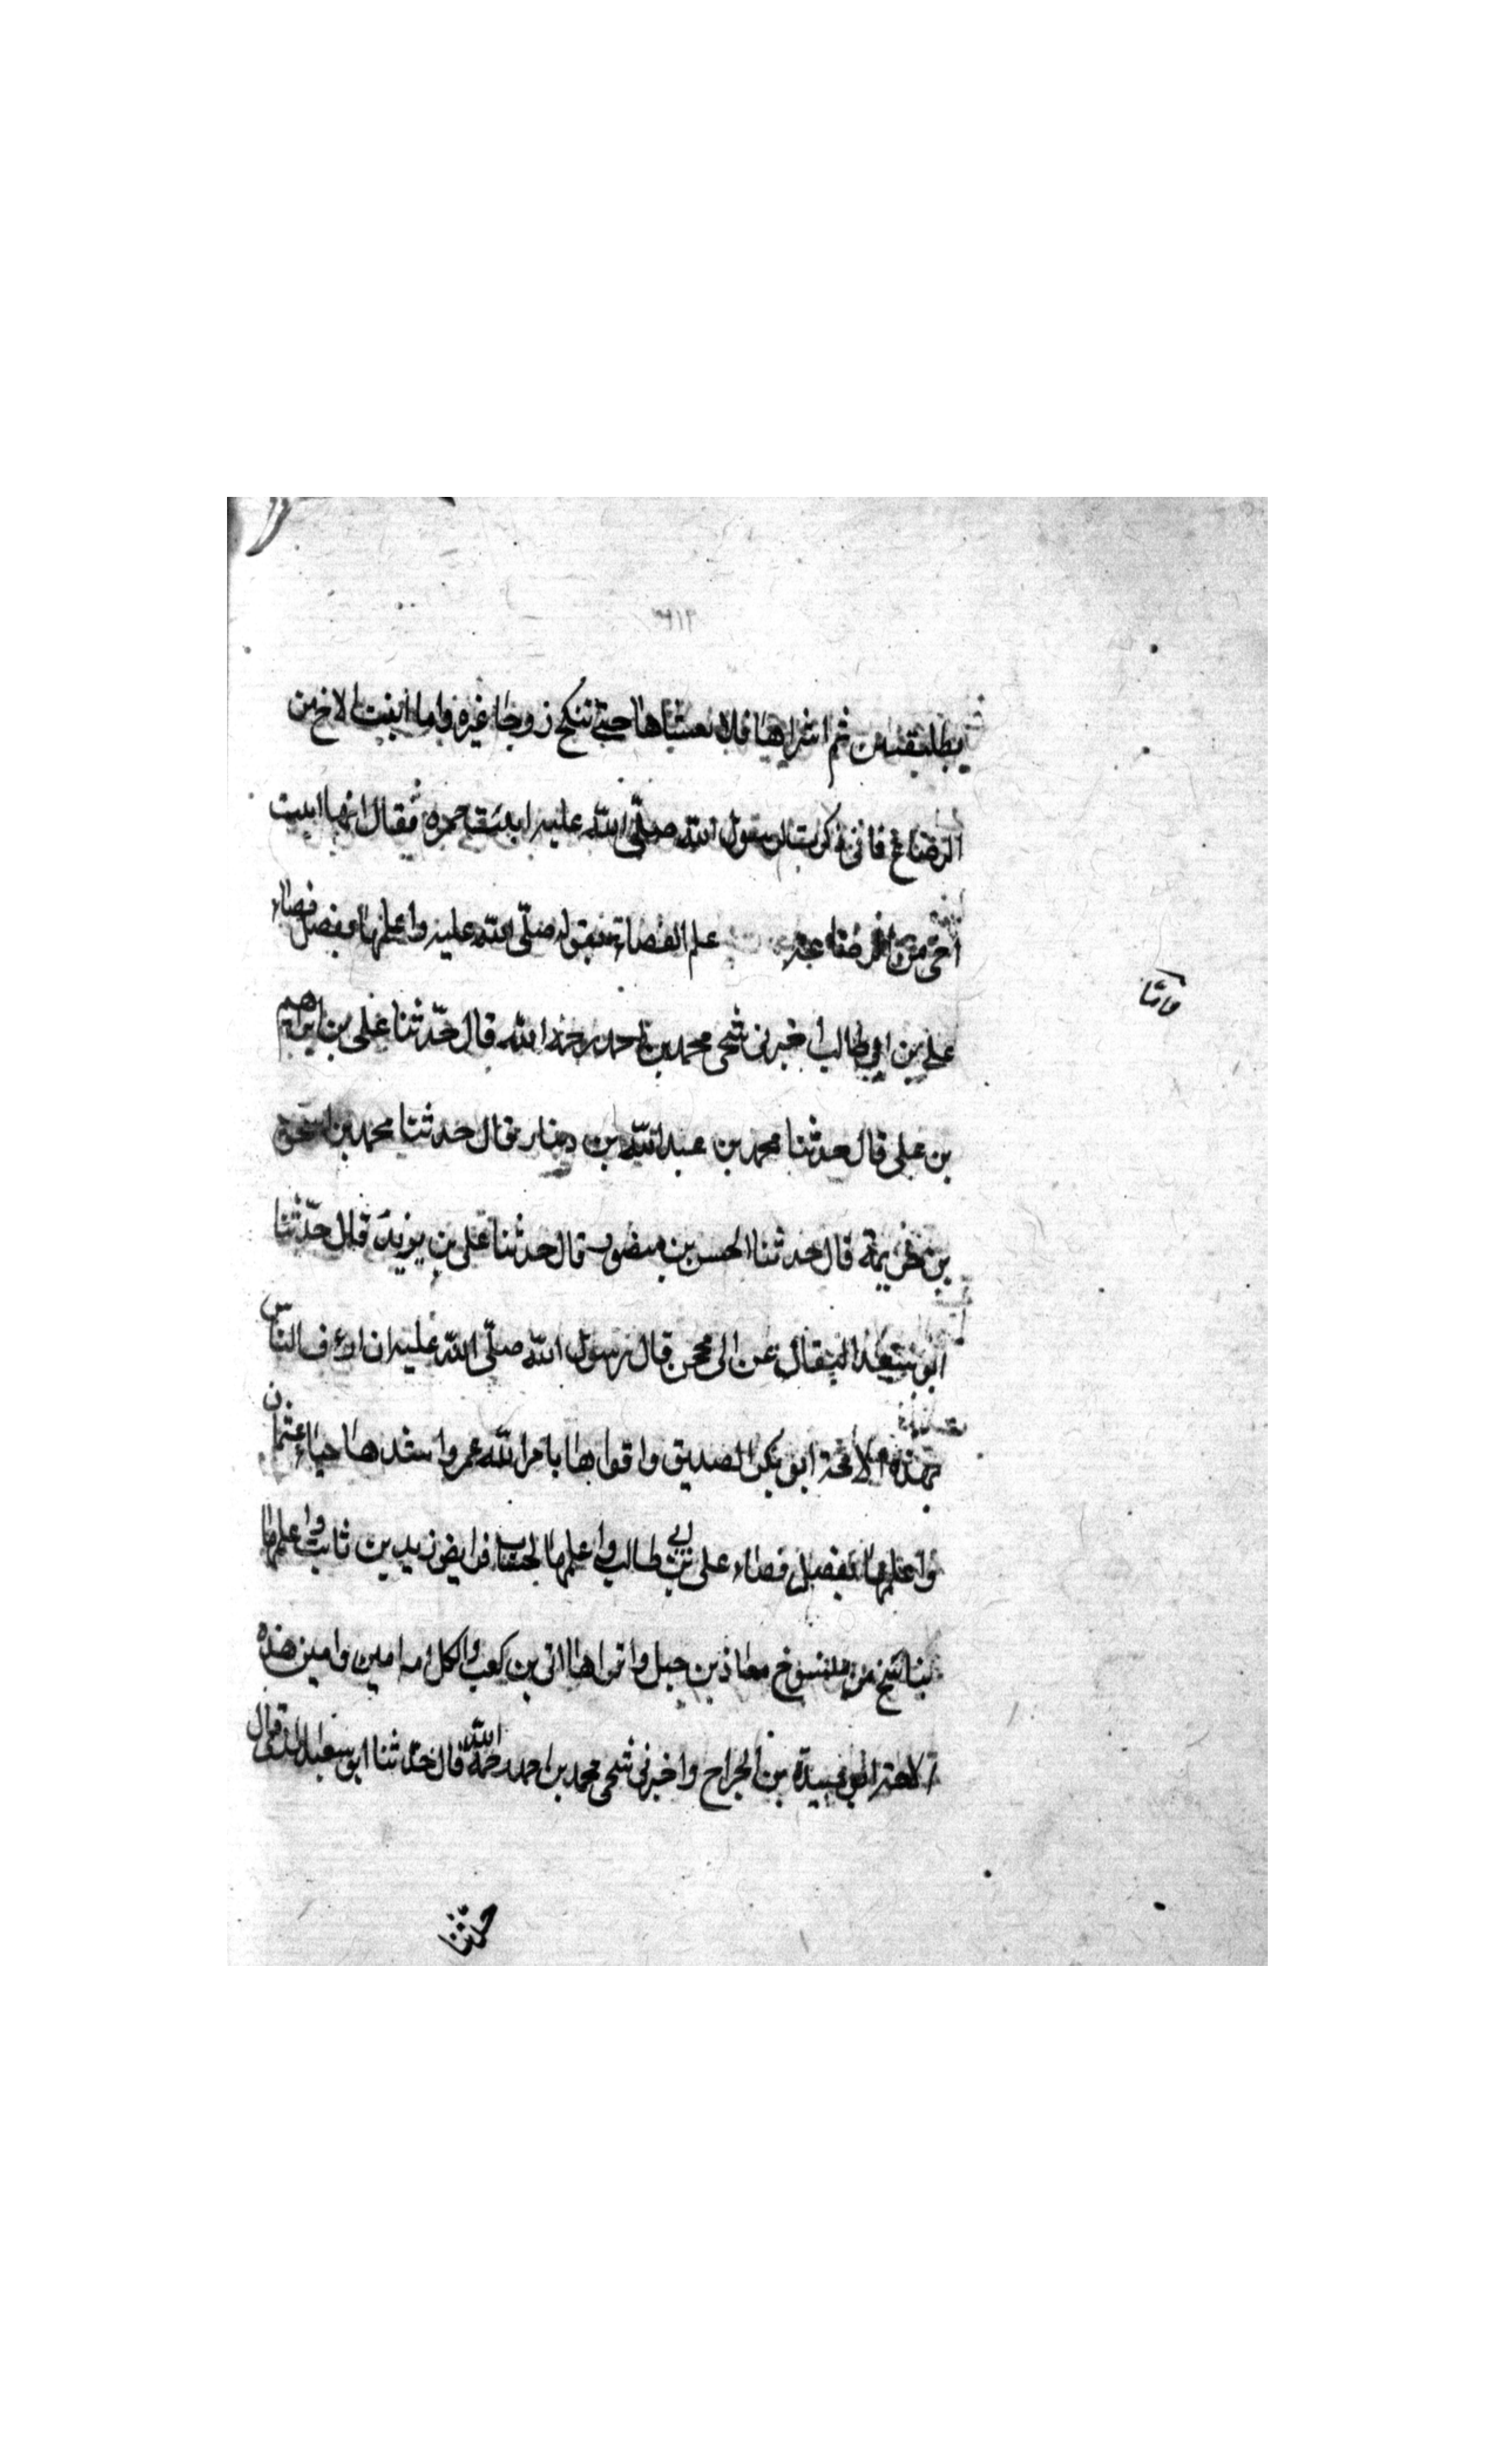 بطليقتين ثم اشراها فلا تعشاها حتى تنكح زوجا غيره واما ابنت الاخ من
الرضاع فانى ذكرت لرسول الله صلى الله عليه ابنة حمزه فقال انها ابنت
اخى من الرضاعه علم القضاء فبقوله صلى الله عليه واعلمها بفصل قضاء
وامّا
على بن ابى طالب اخبرنى شيخى محمد بن احمد رحمه الله قال حدّثنا على بن ابراهيم
بن على قال حدثنا محمد بن عبد الله بن دينار قال حدثنا محمد بن اسحق
بن خزيمة قال حدثنا الحسن بن منصور قال حدثنا على بن يزيد قال حدّثنا
ابو سعد البقال عن ابى محجن قال رسول الله صلّى الله عليه ان ارءف الناس
بهذه الامة ابو بكر الصديق واقواها بامر الله عمر واشدها حياء عثمان
واعلمها بفصل قضاء على بن ابى طالب واعلمها بحساب فرايض زيد بن ثابت واعلمها
بناسخ من منسوخ معاذ بن جبل واقراها ابى بن كعب ولكل امه امين وامين هذه
الامة ابو عبيدة بن الجراح واخبرنى شيخى محمد بن احمد رحمه الله قال حدّثنا ابو سعيد قال
حدّثنا